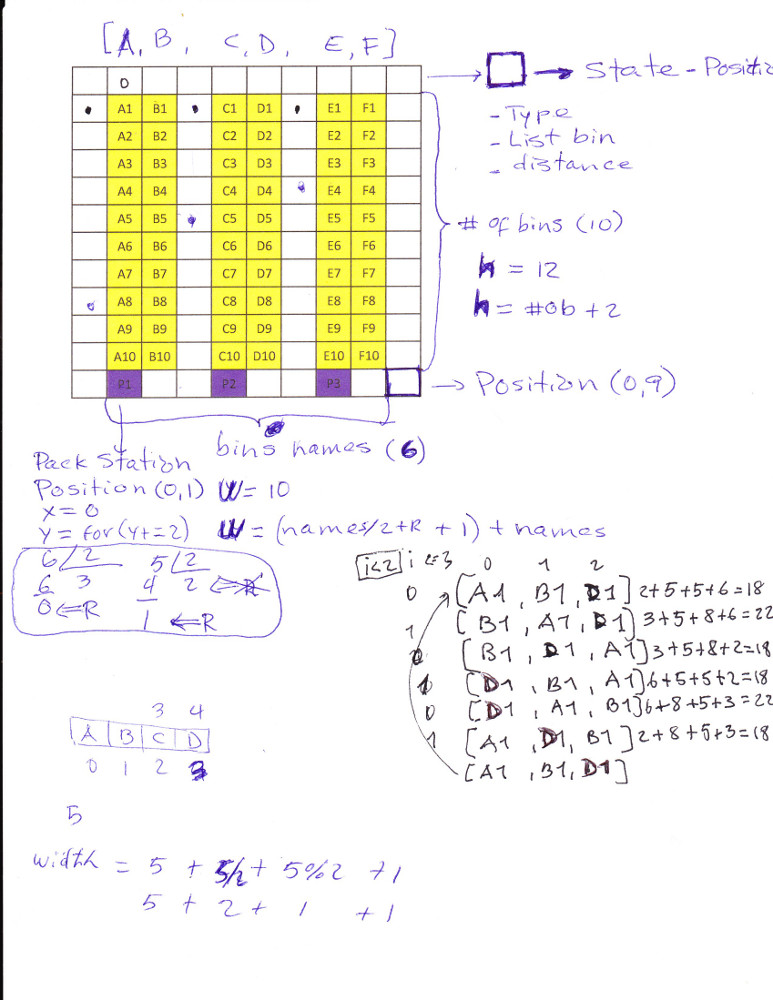 [A, B, C, D, E, F]
0
State - Positio
- Type
- List bin
- distance
A1 B1 C1 D1 E1 F1
A2 B2 C2 D2 E2 F2
A3 B3 C3 D3 E3 F3
A4 B4 C4 D4 E4 F4
A5 B5 C5 D5 E5 F5
A6 B6 C6 D6 E6 F6
A7 B7 C7 D7 E7 F7
A8 B8 C8 D8 E8 F8
A9 B9 C9 D9 E9 F9
A10 B10 C10 D10 E10 F10
P1 P2 P3
# of bins (10)
h = 12
h = #ob + 2
Position (0,9)
bins names (6)
Pack Station
Position (0,1) W = 10
x = 0
y = for(y+=2) W = (names/2+R + 1) + names
6 /2 5 /2
6 3 4 2 <= R
0 <= R 1 <= R
i<2 i <= 3 0 1 2
0 [A1, B1, D1] 2+5+5+6=18
1 [B1, A1, D1] 3+5+8+6=22
[B1, D1, A1] 3+5+8+2=18
1 [D1, B1, A1] 6+5+5+2=18
0 [D1, A1, B1] 6+8+5+3=22
1 [A1, D1, B1] 2+8+5+3=18
[A1, B1, D1]
3 4
A B C D
0 1 2 3
5
width = 5 + 5/2 + 5%2 +1
5 + 2 + 1 +1